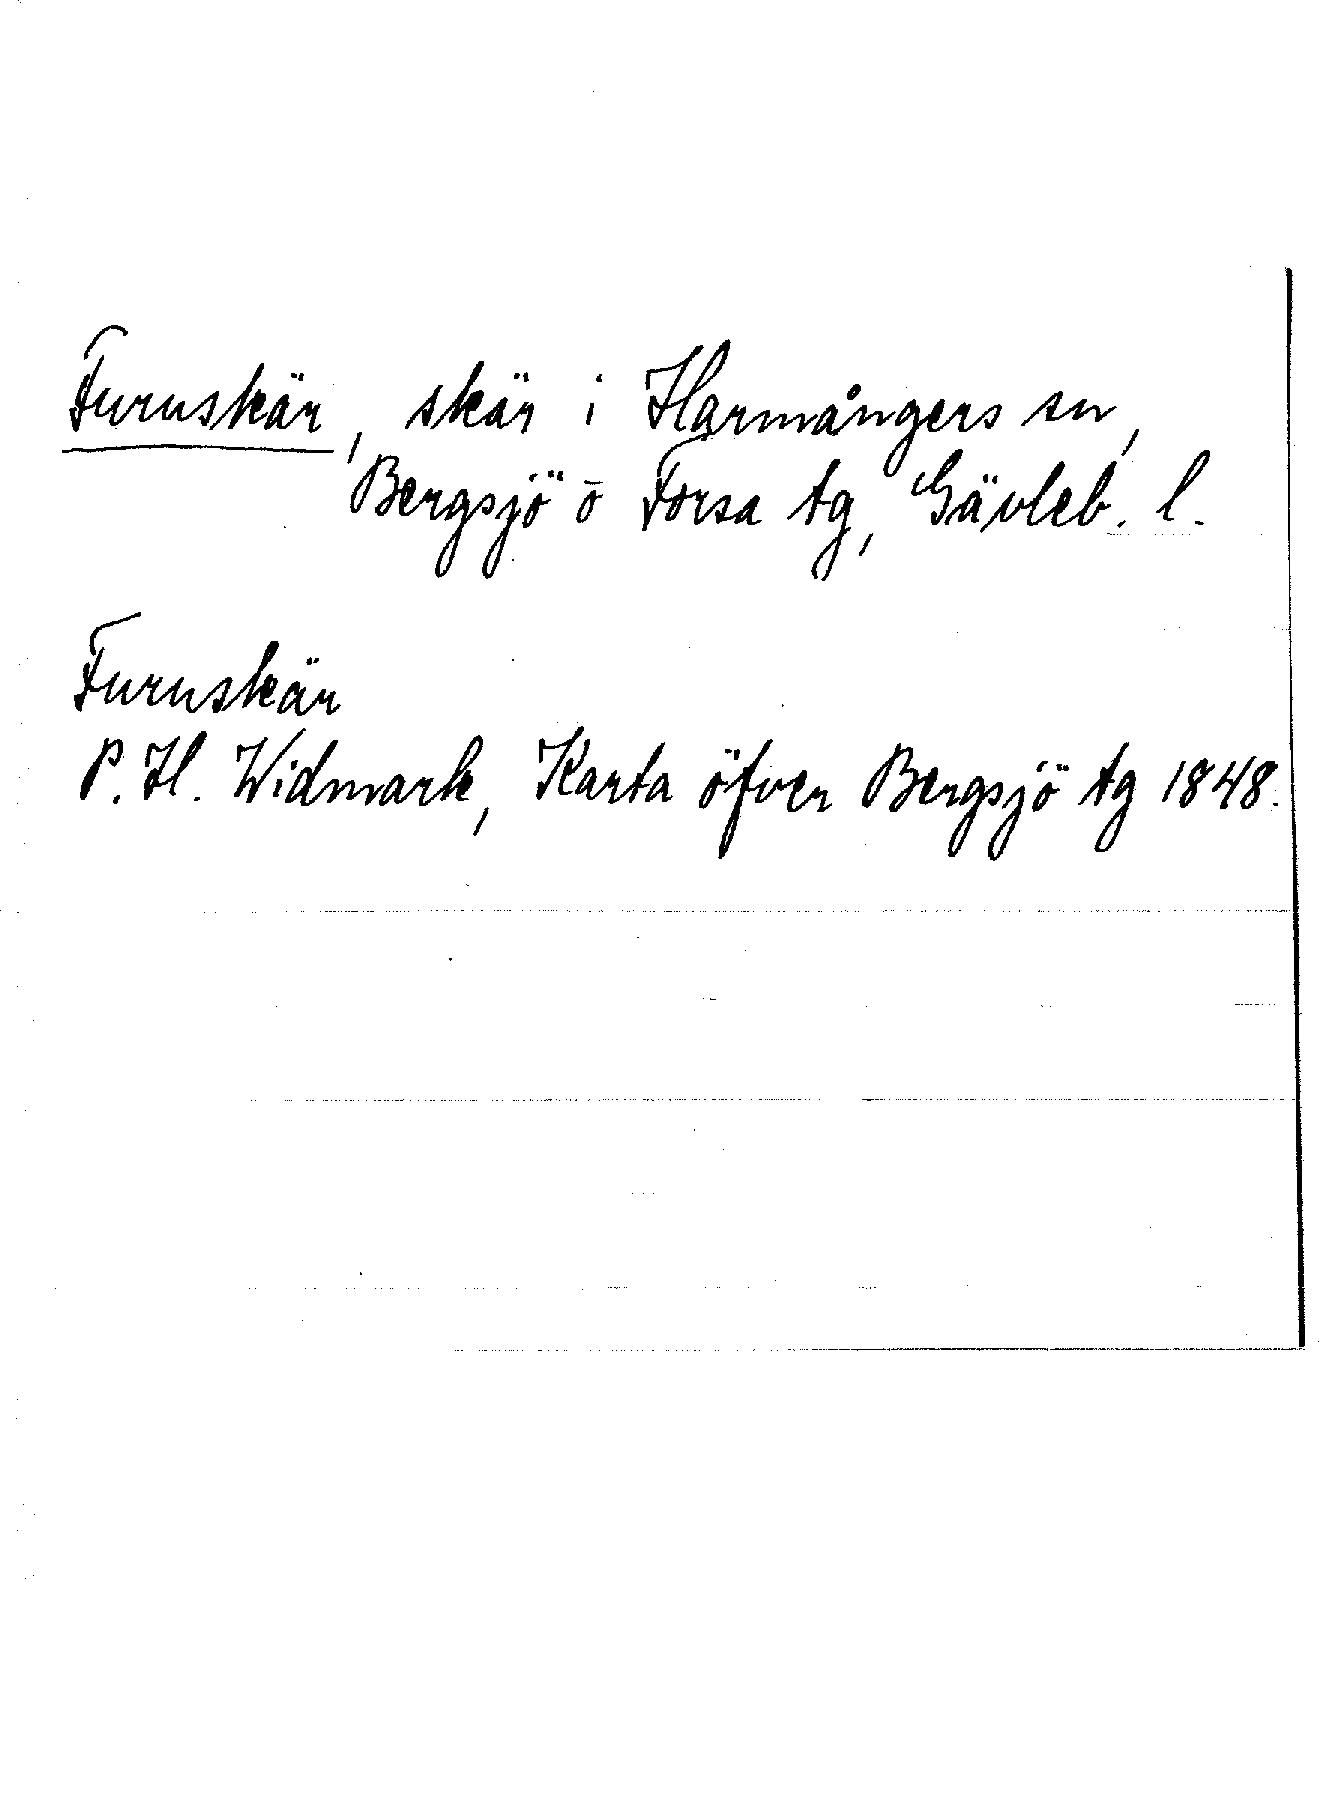 Furuskär, skär i Harmångers sn,
Bergsjö o Forsa tg, Gävleb. l.
Furuskär
P. H. Widmark, Karta öfver Bergsjö tg 1848.